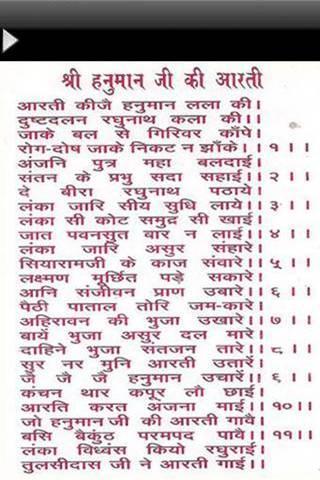 श्री हनुमान जी की आरती
आरती कीजै हनुमान लला की।
दुष्टदलन रघुनाथ कला की।।
जाके बल से गिरिवर काँपे।
रोग-दोष जाके निकट न झाँके।।१।।
अंजनि पुत्र महा बलदाई।
संतन के प्रभु सदा सहाई।।२।।
दे बीरा रघुनाथ पठाये।
लंका जारि सीय सुधि लाये।।३।।
लंका सी कोट समुद्र सी खाई
जात पवनसुत बार न लाई।।४।।
लंका जारि असुर संहारे।
सियारामजी के काज संवारे।।५।।
लक्ष्मण मूर्छित पड़े सकारे।
आनि संजीवन प्राण उबारे।।६।।
पैठी पाताल तोरि जम-कारे।
अहिरावन की भुजा उखारे।।७।।
बायें भुजा असुर दल मारे।
दाहिने भुजा संतजन तारे।।८।।
सुर नर मुनि आरती उतारें।
जै जै जै हनुमान उचारें।।९।।
कंचन थार कपूर लौ छाई।
आरति करत अंजना माई।।१०।।
जो हनुमान जी की आरती गावै।
बसि बैकुंठ परमपद पावै।।११।।
लंका विध्वंस कियो रघुराई।
तुलसीदास जी ने आरती गाई।।